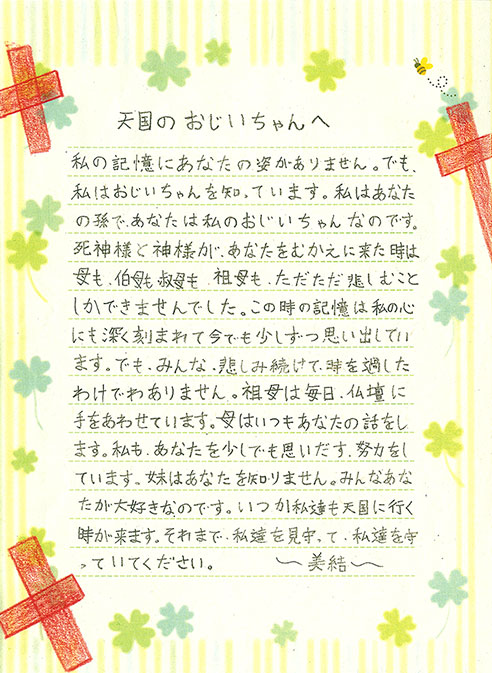 天国のおじいちゃんへ
私の記憶にあなたの姿がありません。でも、
私はおじいちゃんを知っています。私はあなた
の孫で、あなたは私のおじいちゃんなのです。
死神様と神様が、あなたをむかえに来た時は
母も、伯母も叔母も、祖母も、ただただ悲しむこと
しかできませんでした。この時の記憶は私の心
にも深く刻まれて今でも少しずつ思い出してい
ます。でも、みんな、悲しみ続けて、時を過した
わけでわありません。祖母は毎日、仏壇に
手をあわせています。母はいつもあなたの話をし
ます。私も、あなたを少しでも思いだす、努力をし
ています、妹はあなたを知りません。みんなあな
たが大好きなのです。いつか私達も天国に行く
時が来ます。それまで、私達を見守って、私達を守
っていてください。 〜美結〜